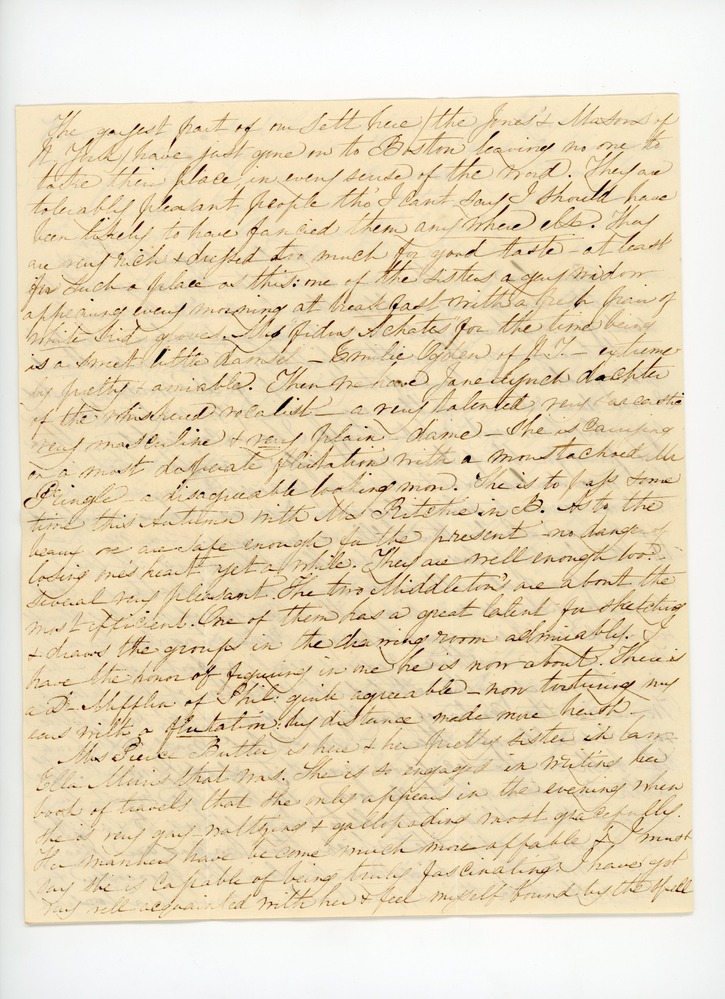 The gayest part of our sett here (the Jones's & Masons of
N. York) have just gone on to Boston leaving no one to
take their place, in every sense of the word. They are
tolerably pleasant people tho' I cant say I should have
been likely to have fancied them any where else. They
are very rich & dressed too much for good taste - at least
for such a place as this: one of the sisters a gay widow
appearing every morning at breakfast with a fresh pair of
white kid gloves. My fidus Achates for the time being
is a sweet little damsel - Emilie of N. Y. - extreme-
ly pretty & amiable. Then we have Jane Lynch daughter
of the whiskered vocalist - a very talented very sarcastic
very masculine & very plain dame - She is carrying
on a most desperate flirtation with a moustachoed Mr
Pringle a disagreeable looking man. She is to pass some
time this Autumn with Mrs Ritchie in B. As to the
beaux we are safe enough for the present no danger of
losing one's heart yet a while. They are well enough too -
several very pleasant. The two Middleton's are about the
most efficient. One of them has a great talent for sketching
& draws the groups in the drawing room admirably. I
have the honor of figuring in one he is now about. There is
a Dr Mifflin of Phil: quite agreeable - now torturing my
ears with a flutation: by distance made more harsh -
Mrs Pierce Butler is here & her pretty sister in law
Ella Mivis that was. She is so engaged in writing her
book of travels that she only appears in the evening when
she is very gay waltzing & gallopading most gracefully.
Her manners have become much more affable & I must
say she is capable of being truly fascinating. I have got
very well acquainted with her & feel myself bound by the spell